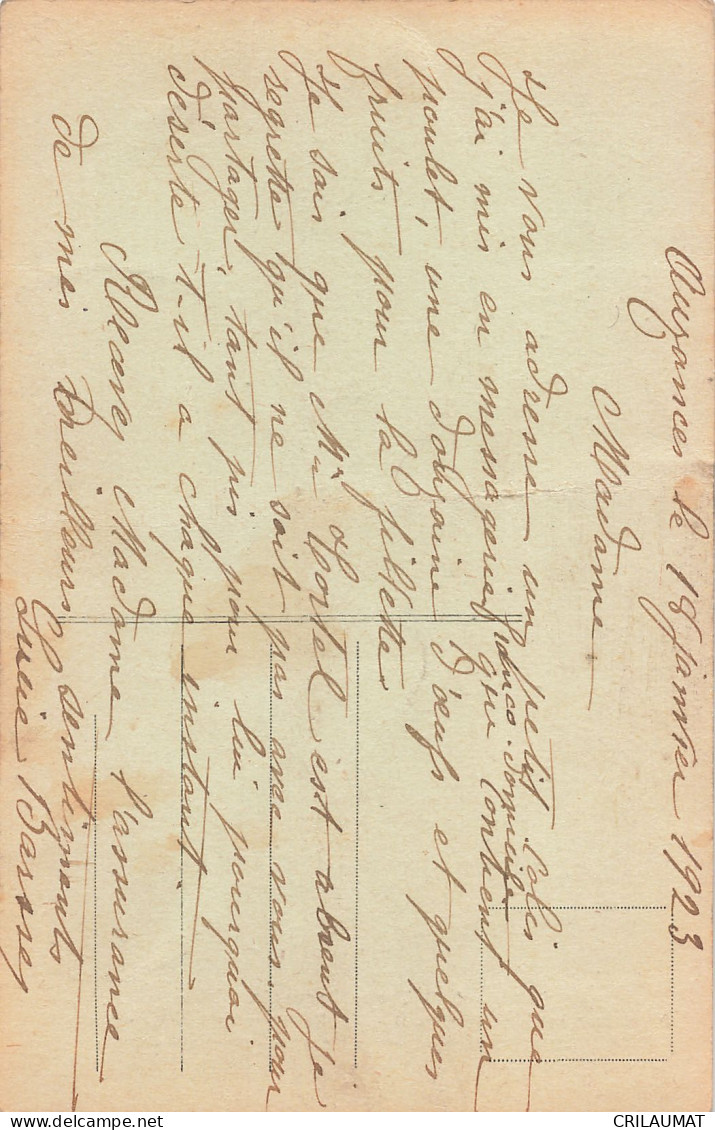 Auzances le 18 janvier 1923
Madame
Je vous adresse un petit Colis que
j'ai mis en messageries que Contient un
poulet, une douzaine d'œufs et quelques
fruits pour la fillette
Je sais que Mr Hortel est absent je
regrette qu'il ne soit pas avec vous pour
partager, tant pis pour lui pourquoi
déserte t-il a chaque instant
Recevez Madame l'assurance
de mes meilleurs sentiments
Lucie
CRILAUMAT